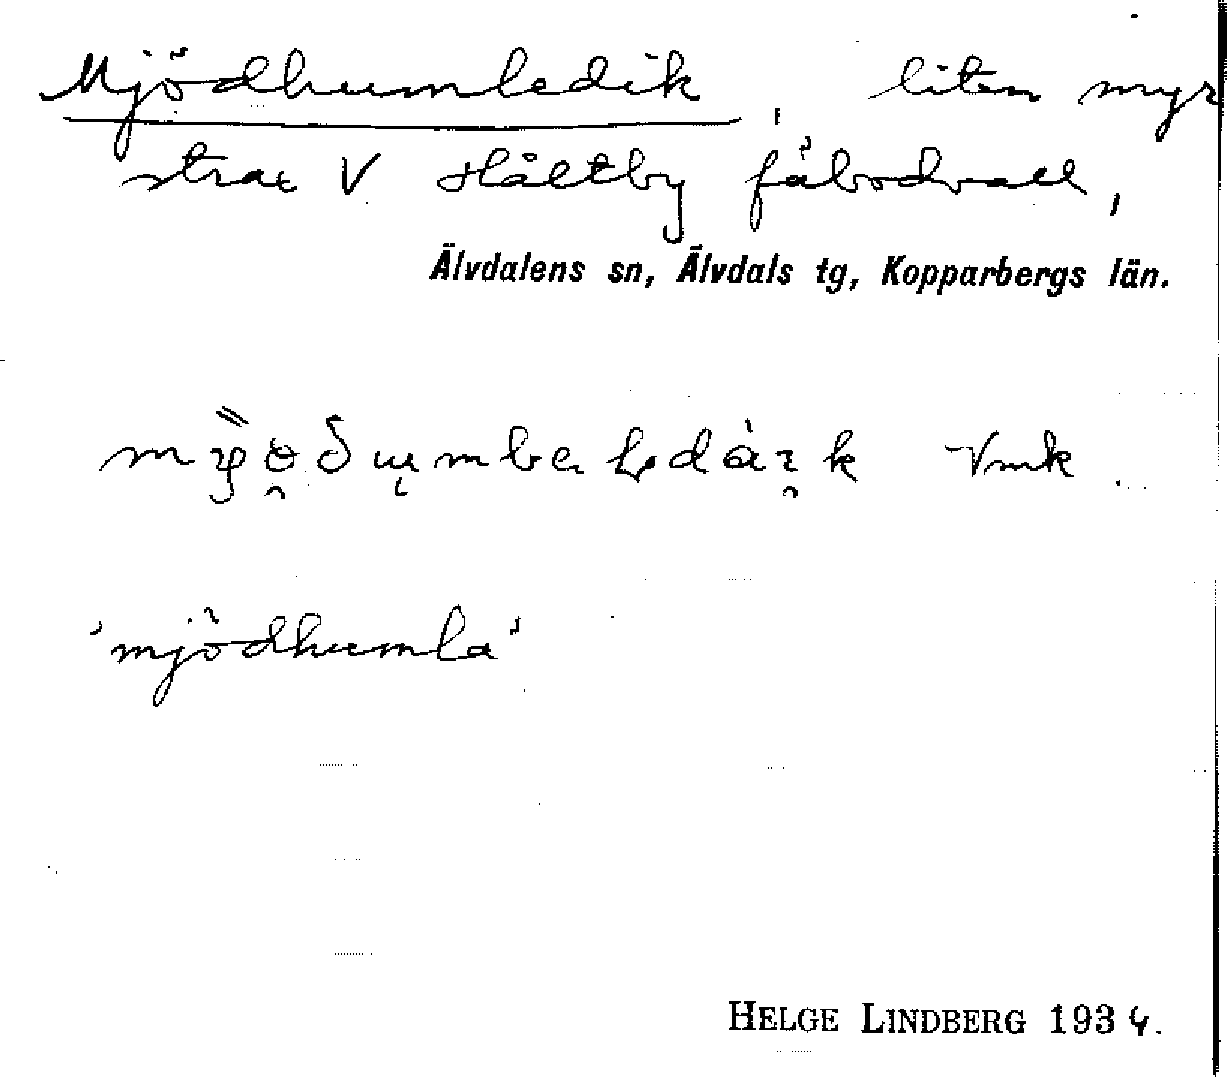 Mjödhumledik, liten myr
strax V Håltby fäbodvall,
Älvdalens sn, Älvdals tg, Kopparbergs län.
Vmk.
'mjödhumla'
HELGE LINDBERG 1934.